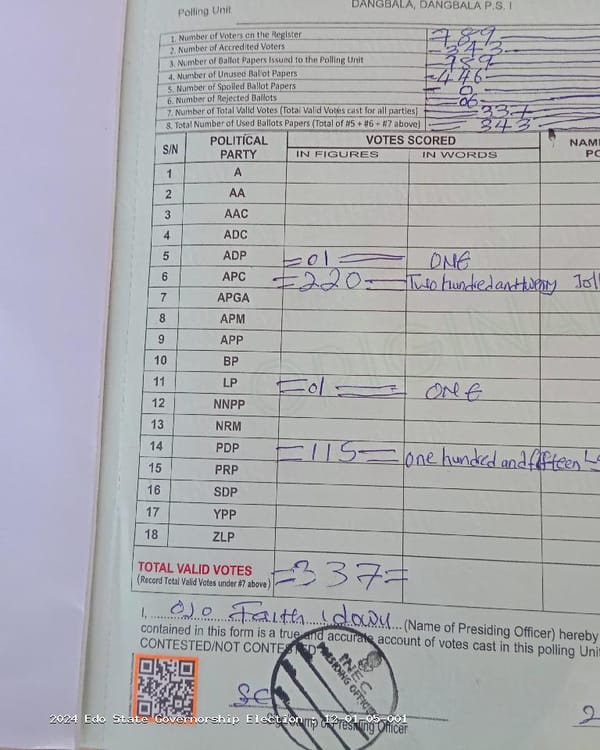 DANGBALA, DANGBALA P.S. I
Polling Unit
1. Number of Voters on the Register 789
2. Number of Accredited Voters 343
3. Number of Ballot Papers Issued to the Polling Unit 789
4. Number of Unused Ballot Papers 446
5. Number of Spoiled Ballot Papers 0
6. Number of Rejected Ballots 06
7. Number of Total Valid Votes (Total Valid Votes cast for all parties) 337
8. Total Number of Used Ballots Papers (Total of #5 + #6 + #7 above) 343
S/N POLITICAL PARTY VOTES SCORED
IN FIGURES IN WORDS
1 A
2 AA
3 AAC
4 ADC
5 ADP =01= ONE
6 APC =220= Two hundred and twenty
7 APGA
8 APM
9 APP
10 BP
11 LP =01= ONE
12 NNPP
13 NRM
14 PDP =115= one hundred and fifteen
15 PRP
16 SDP
17 YPP
18 ZLP
TOTAL VALID VOTES =337=
(Record Total Valid Votes under #7 above)
I, Ojo Faith idowu (Name of Presiding Officer) hereby
contained in this form is a true and accurate account of votes cast in this polling Unit
CONTESTED/NOT CONTESTED
INEC
PRESIDING OFFICER
Presiding Officer
2024 Edo State Governorship Election : 12-01-05-001